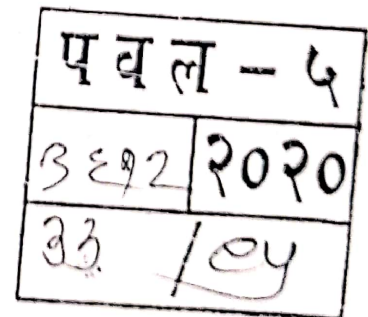 पवल - ५
३६१२ २०२०
३३ /